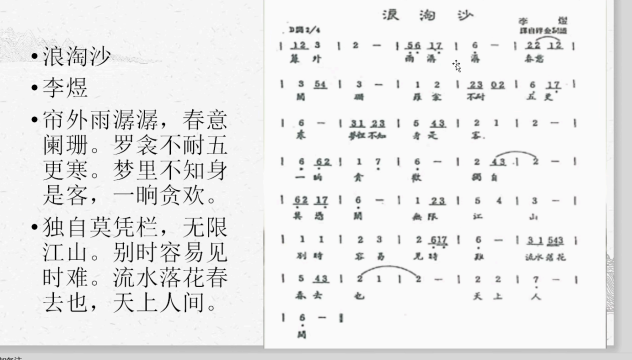 浪淘沙
李煜
帘外雨潺潺，春意
阑珊。罗衾不耐五
更寒。梦里不知身
是客，一晌贪欢。
独自莫凭栏，无限
江山。别时容易见
时难。流水落花春
去也，天上人间。
浪淘沙
李煜
D調2/4
1 2 3 | 2 - | 5 6 1 7 | 6 - | 2 2 1 2
簾外 雨潺 潺 春意
3 5 4 | 3 - | 1 2 | 2 3 0 2 | 6 1 7
闌 珊 羅衾 不耐 五更
6 - | 3 1 2 3 | 5 4 3 | 2 1 | 2 -
寒 夢裡不知 身是 客
6 6 2 | 1 7 | 6 - | 2 4 3 | 2 -
一晌 貪 歡 獨自
6 2 1 7 | 6 - | 1 2 3 | 5 4 | 3 -
無限 江 山
1 1 | 2 3 | 2 6 1 7 | 6 - | 3 1 5 4 3
別時 容易 見時 難 流水落花
5 4 3 | 2 1 | 2 - | 2 2 | 7 -
春去 也 天上 人
6 -
間